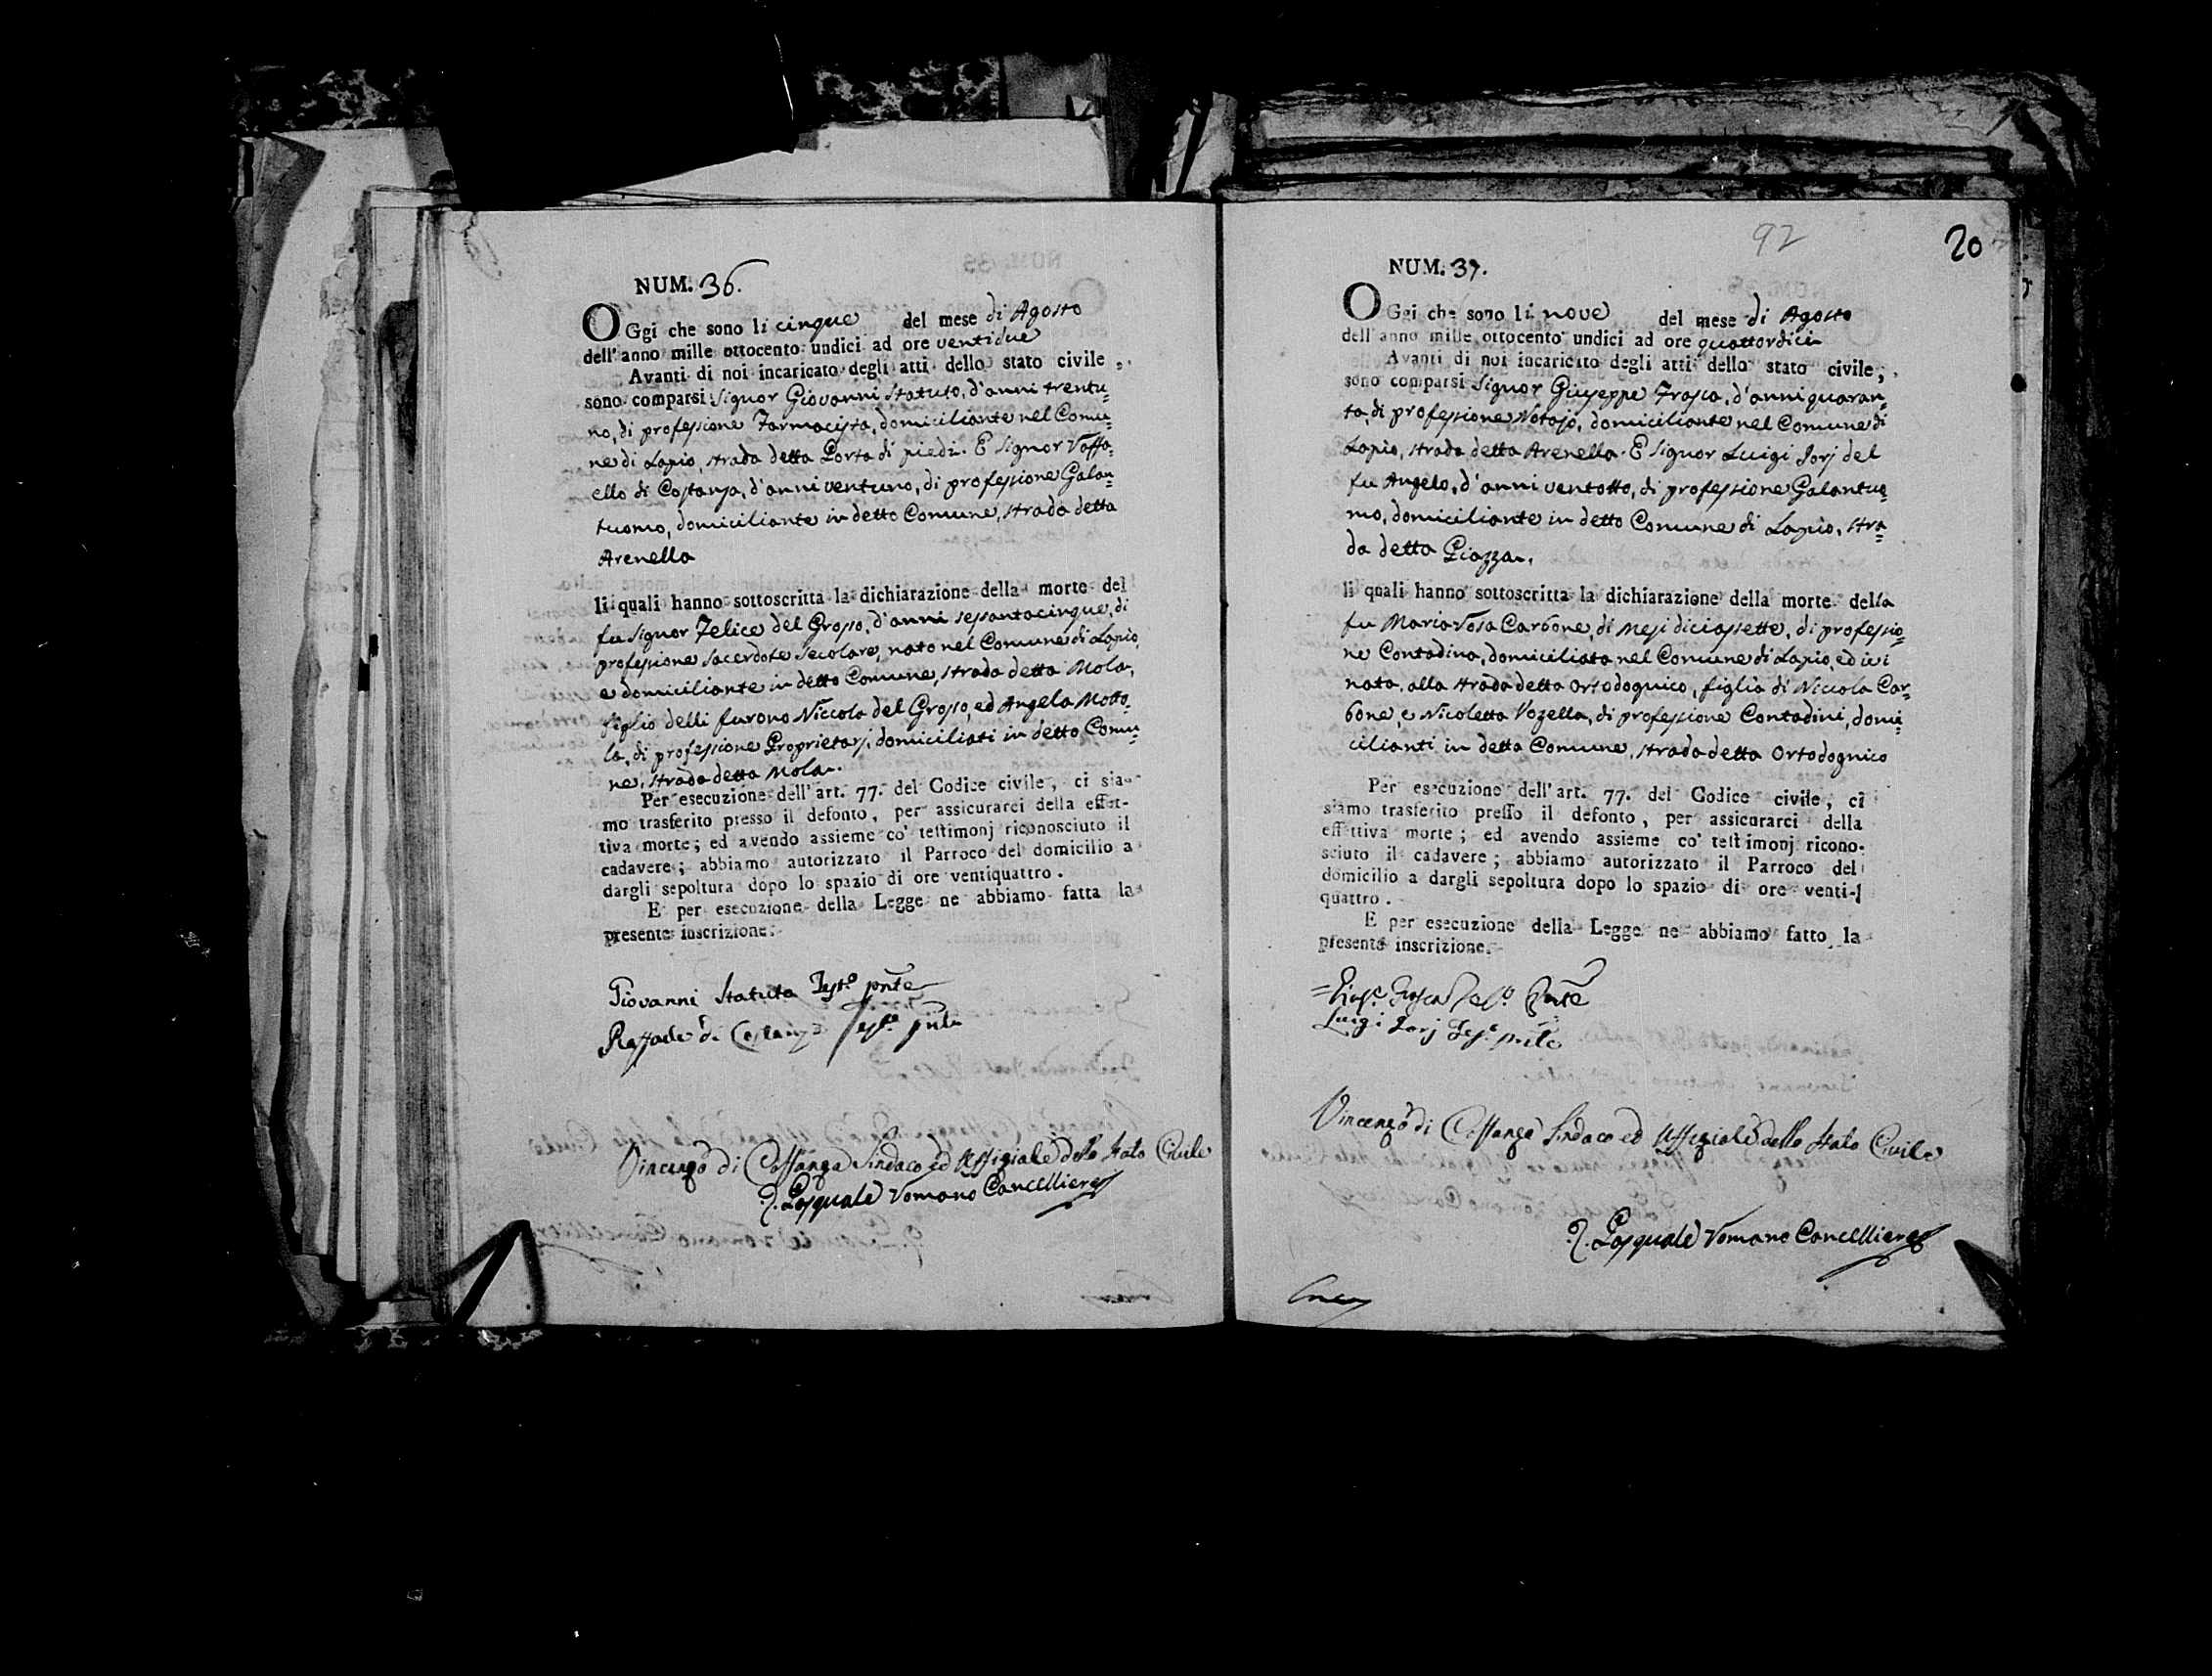 NUM. 36.
OGgi che sono li cinque del mese di Agosto
dell'anno mille ottocento undici ad ore ventidue
Avanti di noi incaricato degli atti dello stato civile,
sono comparsi Signor Giovanni Statuto, d'anni trentu=
no, di professione Farmacista, domiciliante nel Comu=
ne di Lapio, strada detta Porta di piedi. E Signor Raffa=
ello di Costanza, d'anni ventuno, di professione Galan=
tuomo, domiciliante in detto Comune, strada detta
Arenella
li quali hanno sottoscritta la dichiarazione della morte del
fu Signor Felice del Grosso, d'anni sessantacinque, di
professione Sacerdote Secolare, nato nel Comune di Lapio,
e domiciliante in detto Comune, strada detta Mola,
figlio delli furono Niccola del Grosso, ed Angela Motto=
la, di professione Proprietarj, domiciliati in detto Comu=
ne, strada detta Mola.
Per esecuzione dell'art. 77. del Codice civile, ci sia-
mo trasferito presso il defonto, per assicurarci della effet-
tiva morte; ed avendo assieme co' testimonj riconosciuto il
cadavere; abbiamo autorizzato il Parroco del domicilio a
dargli sepoltura dopo lo spazio di ore ventiquattro.
E per esecuzione della Legge ne abbiamo fatta la
presente inscrizione.
Giovanni Statuto Testo pnte
Raffaele di Costanza Testo pnte
Vincenzo di Costanza Sindaco ed Uffiziale dello Stato Civile
D. Pasquale Romano Cancelliere
92
20
NUM. 37.
OGgi che sono li nove del mese di Agosto
dell'anno mille ottocento undici ad ore quattordici
Avanti di noi incaricato degli atti dello stato civile,
sono comparsi Signor Giuseppe Frasca, d'anni quaran=
ta, di professione Notajo, domiciliante nel Comune di
Lapio, strada detta Arenella. E Signor Luigi Jorj del
fu Angelo, d'anni ventotto, di professione Galantuo=
mo, domiciliante in detto Comune di Lapio, stra=
da detta Piazza.
li quali hanno sottoscritta la dichiarazione della morte della
fu Maria Rosa Carbone, di mesi diciassette, di professio=
ne Contadina, domiciliata nel Comune di Lapio, ed ivi
nata, alla strada detta Ortodognico, figlia di Niccola Car=
bone, e Nicoletta Vozella, di professione Contadini, domi=
cilianti in detto Comune, strada detta Ortodognico
Per esecuzione dell'art. 77. del Codice civile, ci
siamo trasferito presso il defonto, per assicurarci della
effettiva morte; ed avendo assieme co' testimonj ricono-
sciuto il cadavere; abbiamo autorizzato il Parroco del
domicilio a dargli sepoltura dopo lo spazio di ore venti-
quattro.
E per esecuzione della Legge ne abbiamo fatto la
presente inscrizione.
Frasca Testo pnte
Luigi Jorj Testo pnte
Vincenzo di Costanza Sindaco ed Uffiziale dello Stato Civile
D. Pasquale Romano Cancelliere